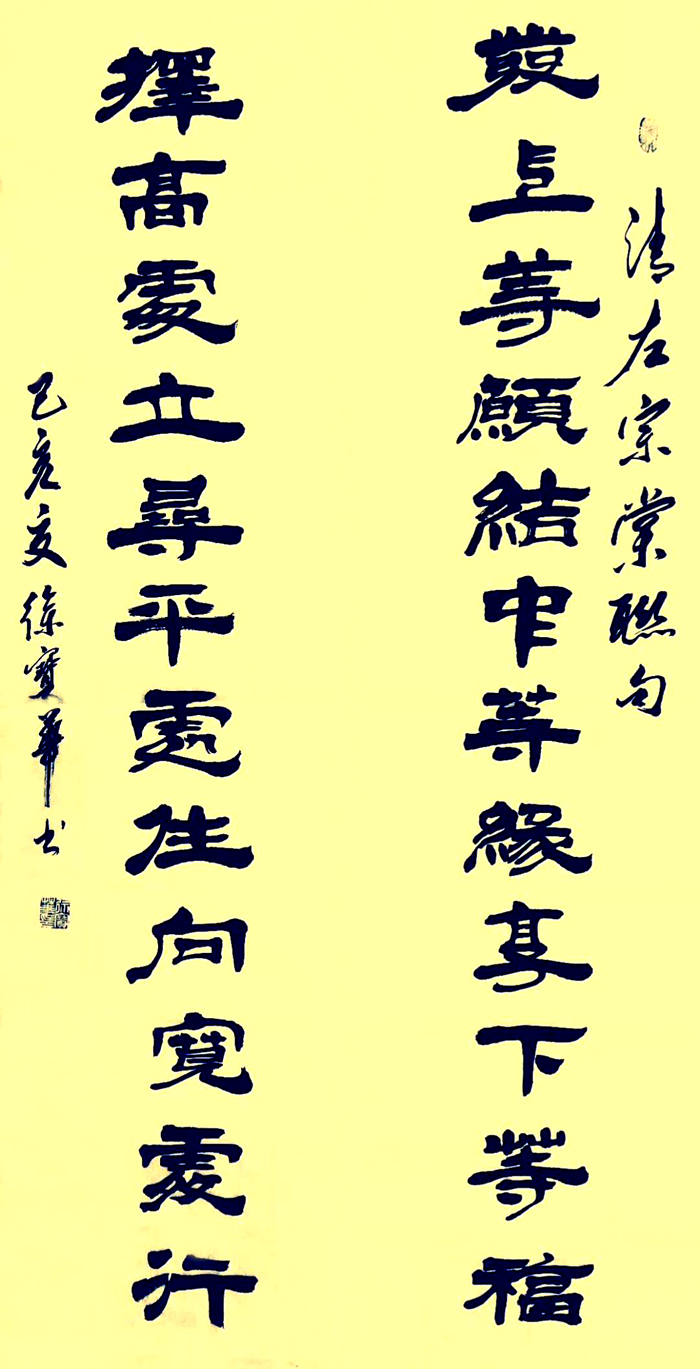 清左宗棠聯句
發上等願結中等緣享下等福
擇高處立尋平處住向寬處行
己亥夏徐寶華书